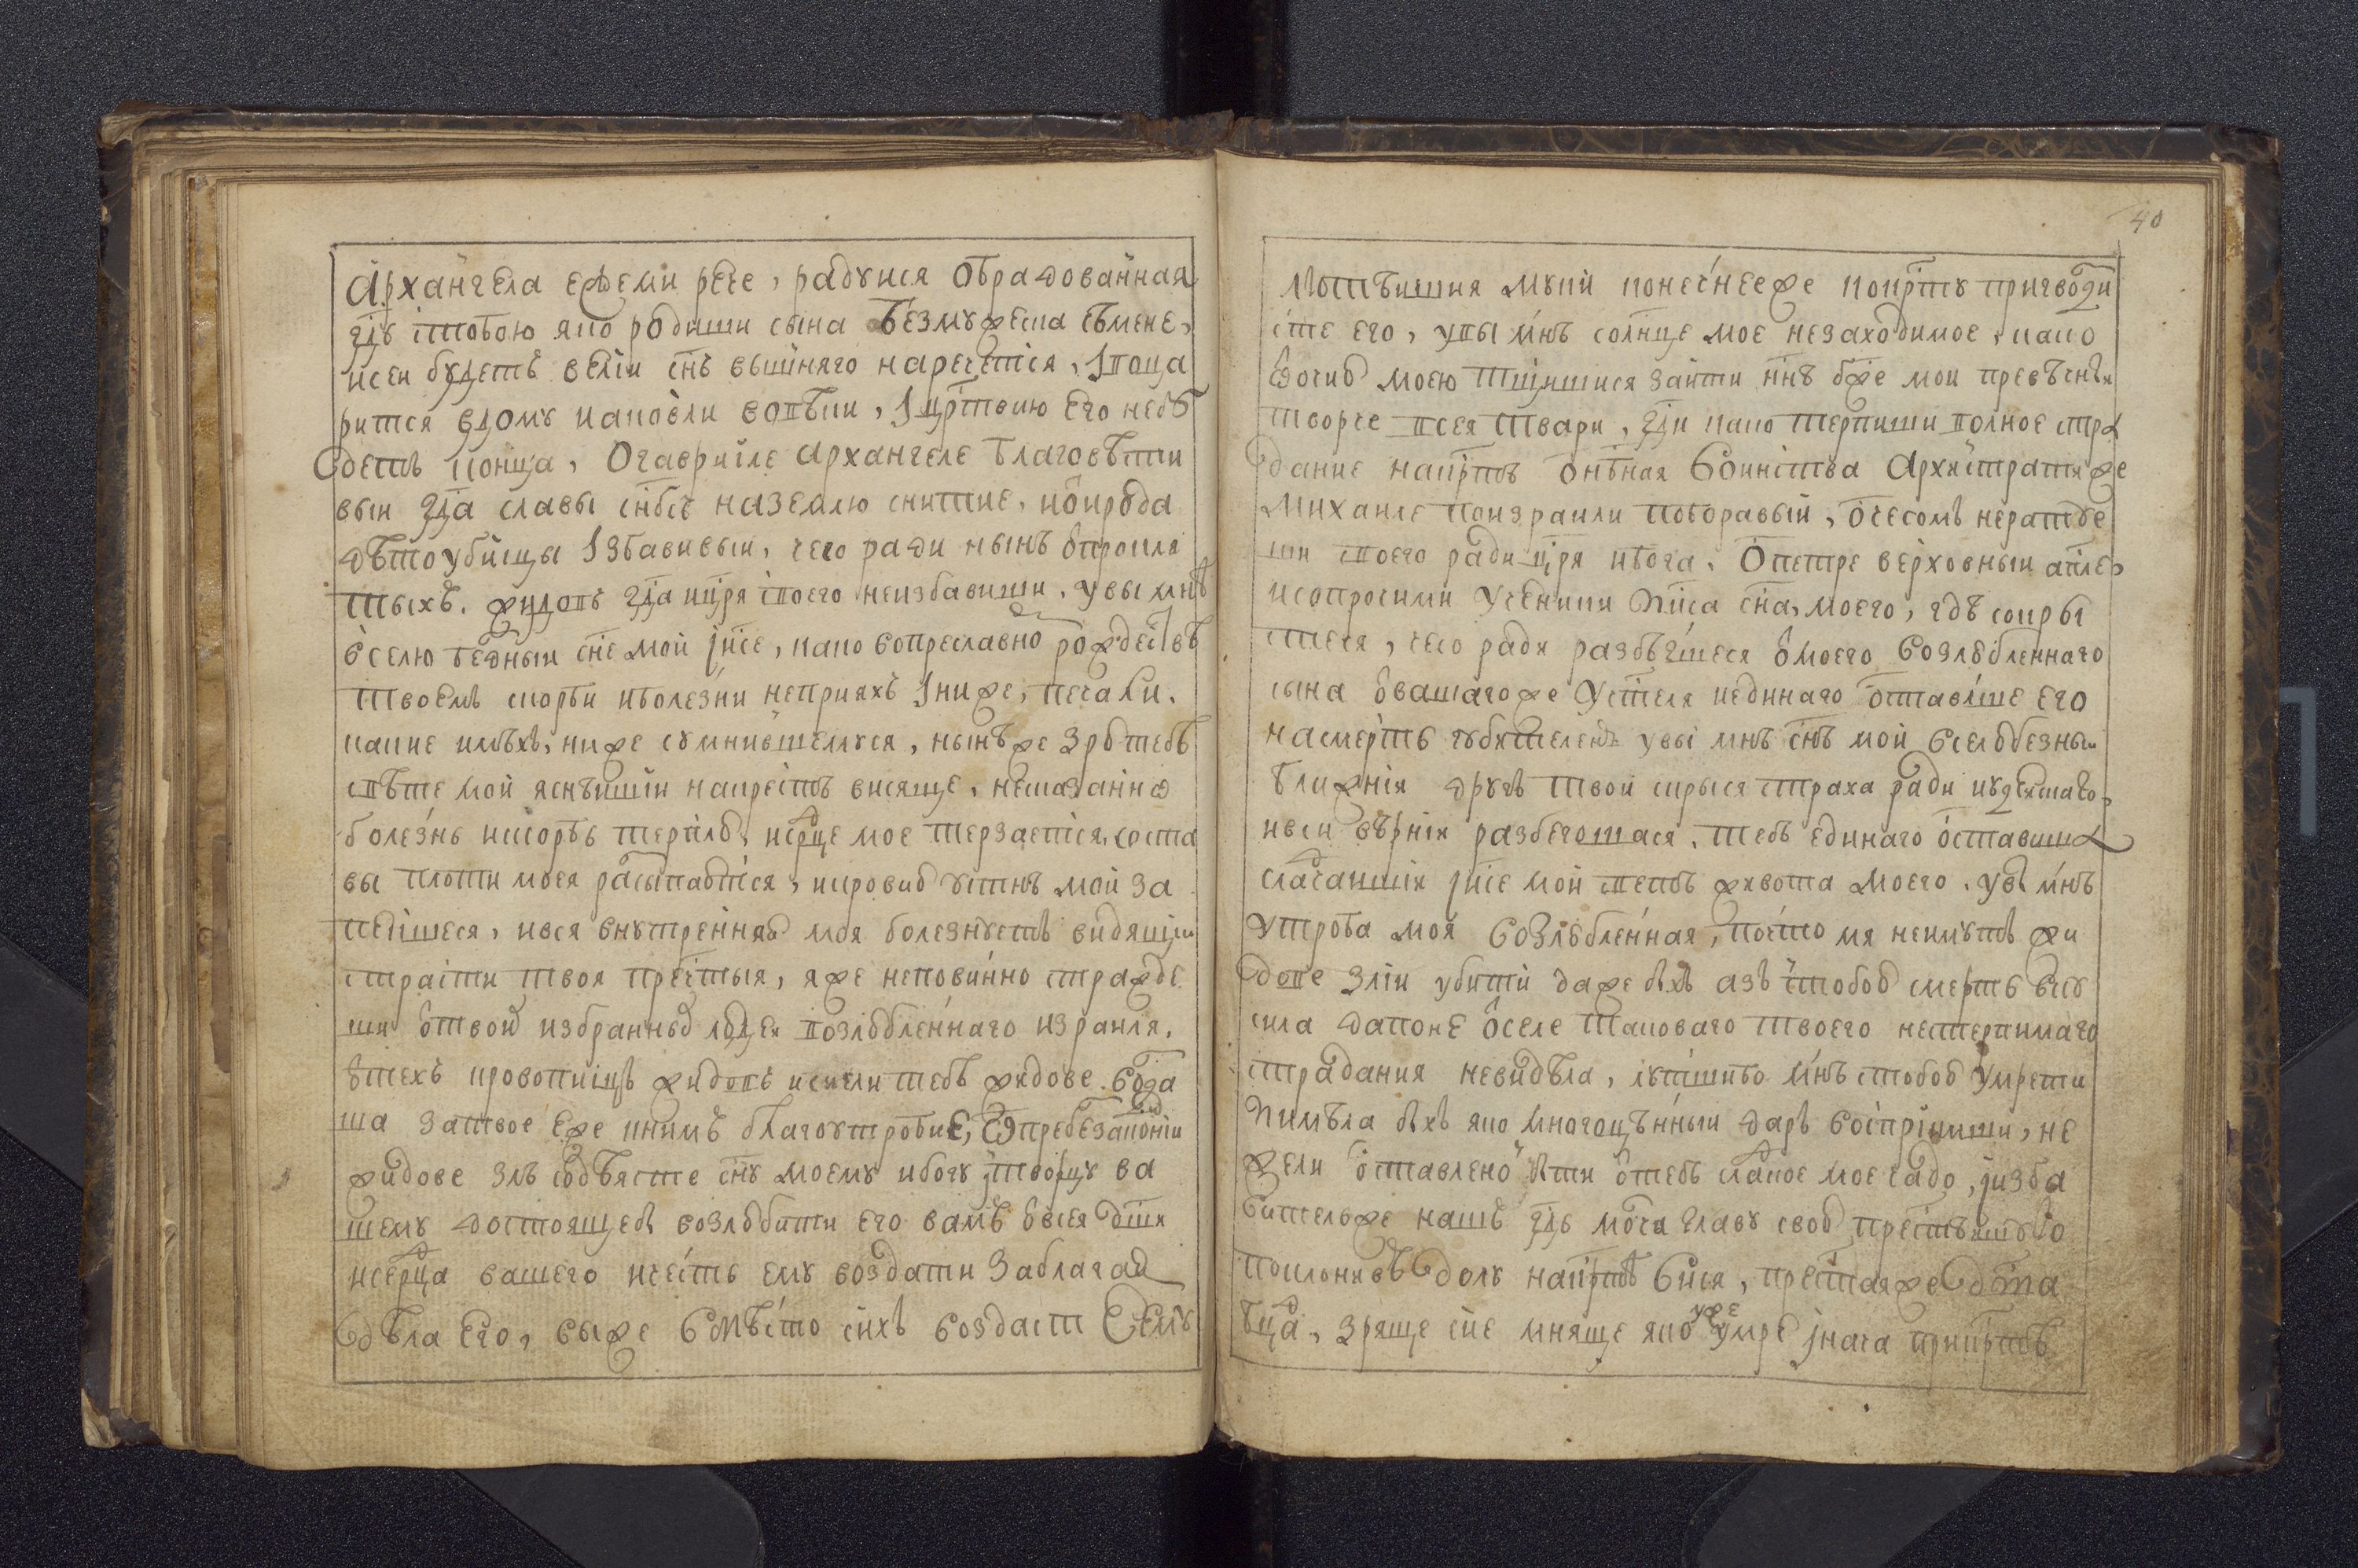 архангела еже ми рече, радуися обрадованная
гдь стобою яко родиши сына безмужеска сѣмене,
исеи будетъ велiи снъ вышняго наречется, iвоца
рится вдому иаковли вовѣки, iцртвию его небу
детъ конца, о гаврииле архангеле благовѣсти
выи гда славы снбсъ наземлю снитие, иѿирода
дѣтоубийцы iзбавивыи, чесо ради нынѣ ѿпрокля
тыхъ жидовъ гда ицря своего неизбавиши, увы мнѣ
вселюбезныи сне мои iисе, како вопреславно рождествѣ
твоемъ скорби иболезни неприяхъ iниже, печали
какие имѣхъ, ниже сумнившемуся, нынѣже зрю тебѣ
свѣте мой яснѣишии накрестѣ висяще, несказанно
болезнь искорбь терплю, исрце мое терзается, соста
вы плоти моея разсыпаются, икровию устнѣ мои за
пекшеся, ився внутренняя моя болезнуетъ видящи
страсти твоя престыя, яже неповинно стражде
ши ѿтвои избранныхъ людеи возлюбленнаго израиля,
ѿтехъ кровопиицъ жидовъ исицели тебѣ жидове созда
ша затвое еже книмъ благоутробие, ѽ пребеззаконнiи
жидове злѣ содѣясте сну моему ибогу iтворцу ва
шему достоящебѣ возлюбити его вамъ ѿвсея дши
исерца вашего ичесть ему воздати заблагая
дѣла его, выже вмѣсто сихъ воздасте ему
40
лютѣишия муки конеснееже покрту пригвозди
сте его, увы мнѣ солнце мое незаходимое, како
ѿочию моею тщишися заити ннѣ бже мои превѣчны
творче всея твари, гди како терпиши волное стра
дание накртѣ ѽнбная воинства архистратиже
михаиле поизраили поборавый, ѽчесомъ нератуе
ши своего ради цря ибога, ѽпетре верховныи апле,
исопрочими ученики хпса сна моего, гдѣ сокры
стеся, чесо ради разбѣгшеся ѿмоего возлюбленнаго
сына ѿвашагоже учтеля иединаго оставлше его
насмерть губителемъ увы мнѣ снѣ мой вселюбезныи
ближнiя друзи твои скрыся страха ради иудеискаго,
ивси вѣрнiи разбегошася, тебѣ единаго оставиша
сладчаишiи iисе мой свете живота моего, увы мнѣ
утроба моя возлюбленная, почто мя неимутъ жи
дове злiи убити дабе быхъ азъ стобою смерть вку
сила дапоне ѿселе таковаго твоего нестерпимаго
страдания невидѣла, лутшибо мнѣ стобою умрети
химѣла быхъ яко многоцѣнныи даръ воспрiимши, не
жели оставлено быти ѿтебѣ сладкое мое чадо, iизба
вительже нашъ гдь моча главу свою престѣишую
поклонивъ долу накртѣ вися, престаяже дѣта
бца, зряще сие мняще яко уже умре iнача прикртѣ